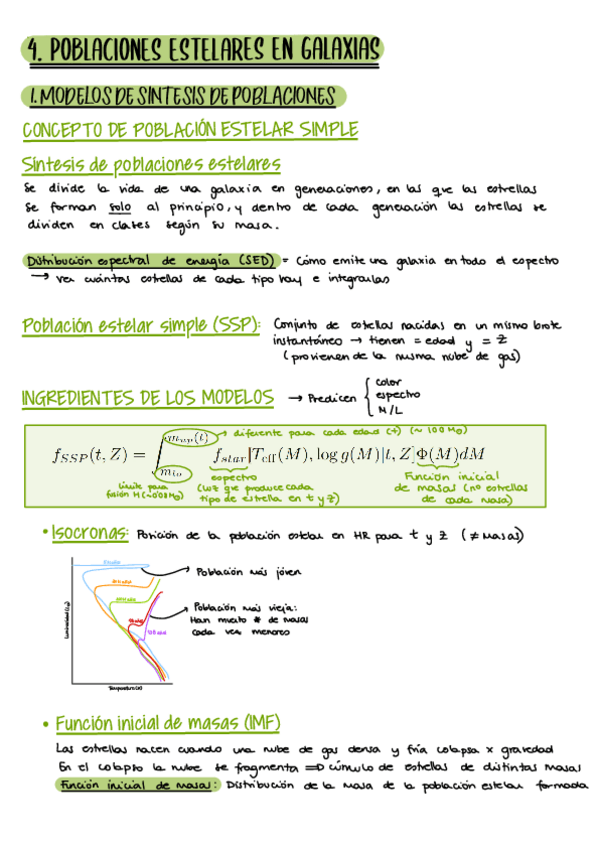 4. POBLACIONES ESTELARES EN GALAXIAS
1. MODELOS DE SINTESIS DE POBLACIONES
CONCEPTO DE POBLACIÓN ESTELAR SIMPLE
Síntesis de poblaciones estelares
Se divide la vida de una galaxia en generaciones, en las que las estrellas
se forman solo al principio, y dentro de cada generación las estrellas se
dividen en clases según su masa.
Distribución espectral de energía (SED) = Cómo emite una galaxia en todo el espectro
→ ver cuántas estrellas de cada tipo hay e integrarlas
Población estelar simple (SSP): Conjunto de estrellas nacidas en un mismo brote
instantáneo → tienen = edad y = Z
(provienen de la misma nube de gas)
INGREDIENTES DE LOS MODELOS → Predicen { color
espectro
M/L
→ diferente para cada edad (t) (~ 100 M⊙)
f_SSP(t, Z) = ∫_{m_{in}}^{m_{up}(t)} f_star[T_eff(M), log g(M)|t, Z] Φ(M)dM
Límite para
fusión H (~0.08 M⊙)
espectro
(luz que produce cada
tipo de estrella en t y Z)
Función inicial
de masas (nº estrellas
de cada masa)
• Isocronas: Posición de la población estelar en HR para t y Z (≠ masas)
Población más jóven
Población más vieja:
Han muerto # de masas
cada vez menores
Temperatura (K)
• Función inicial de masas (IMF)
Las estrellas nacen cuando una nube de gas densa y fría colapsa x gravedad
En el colapso la nube se fragmenta ⇒ cúmulo de estrellas de distintas masas
Función inicial de masas: Distribución de la masa de la población estelar formada